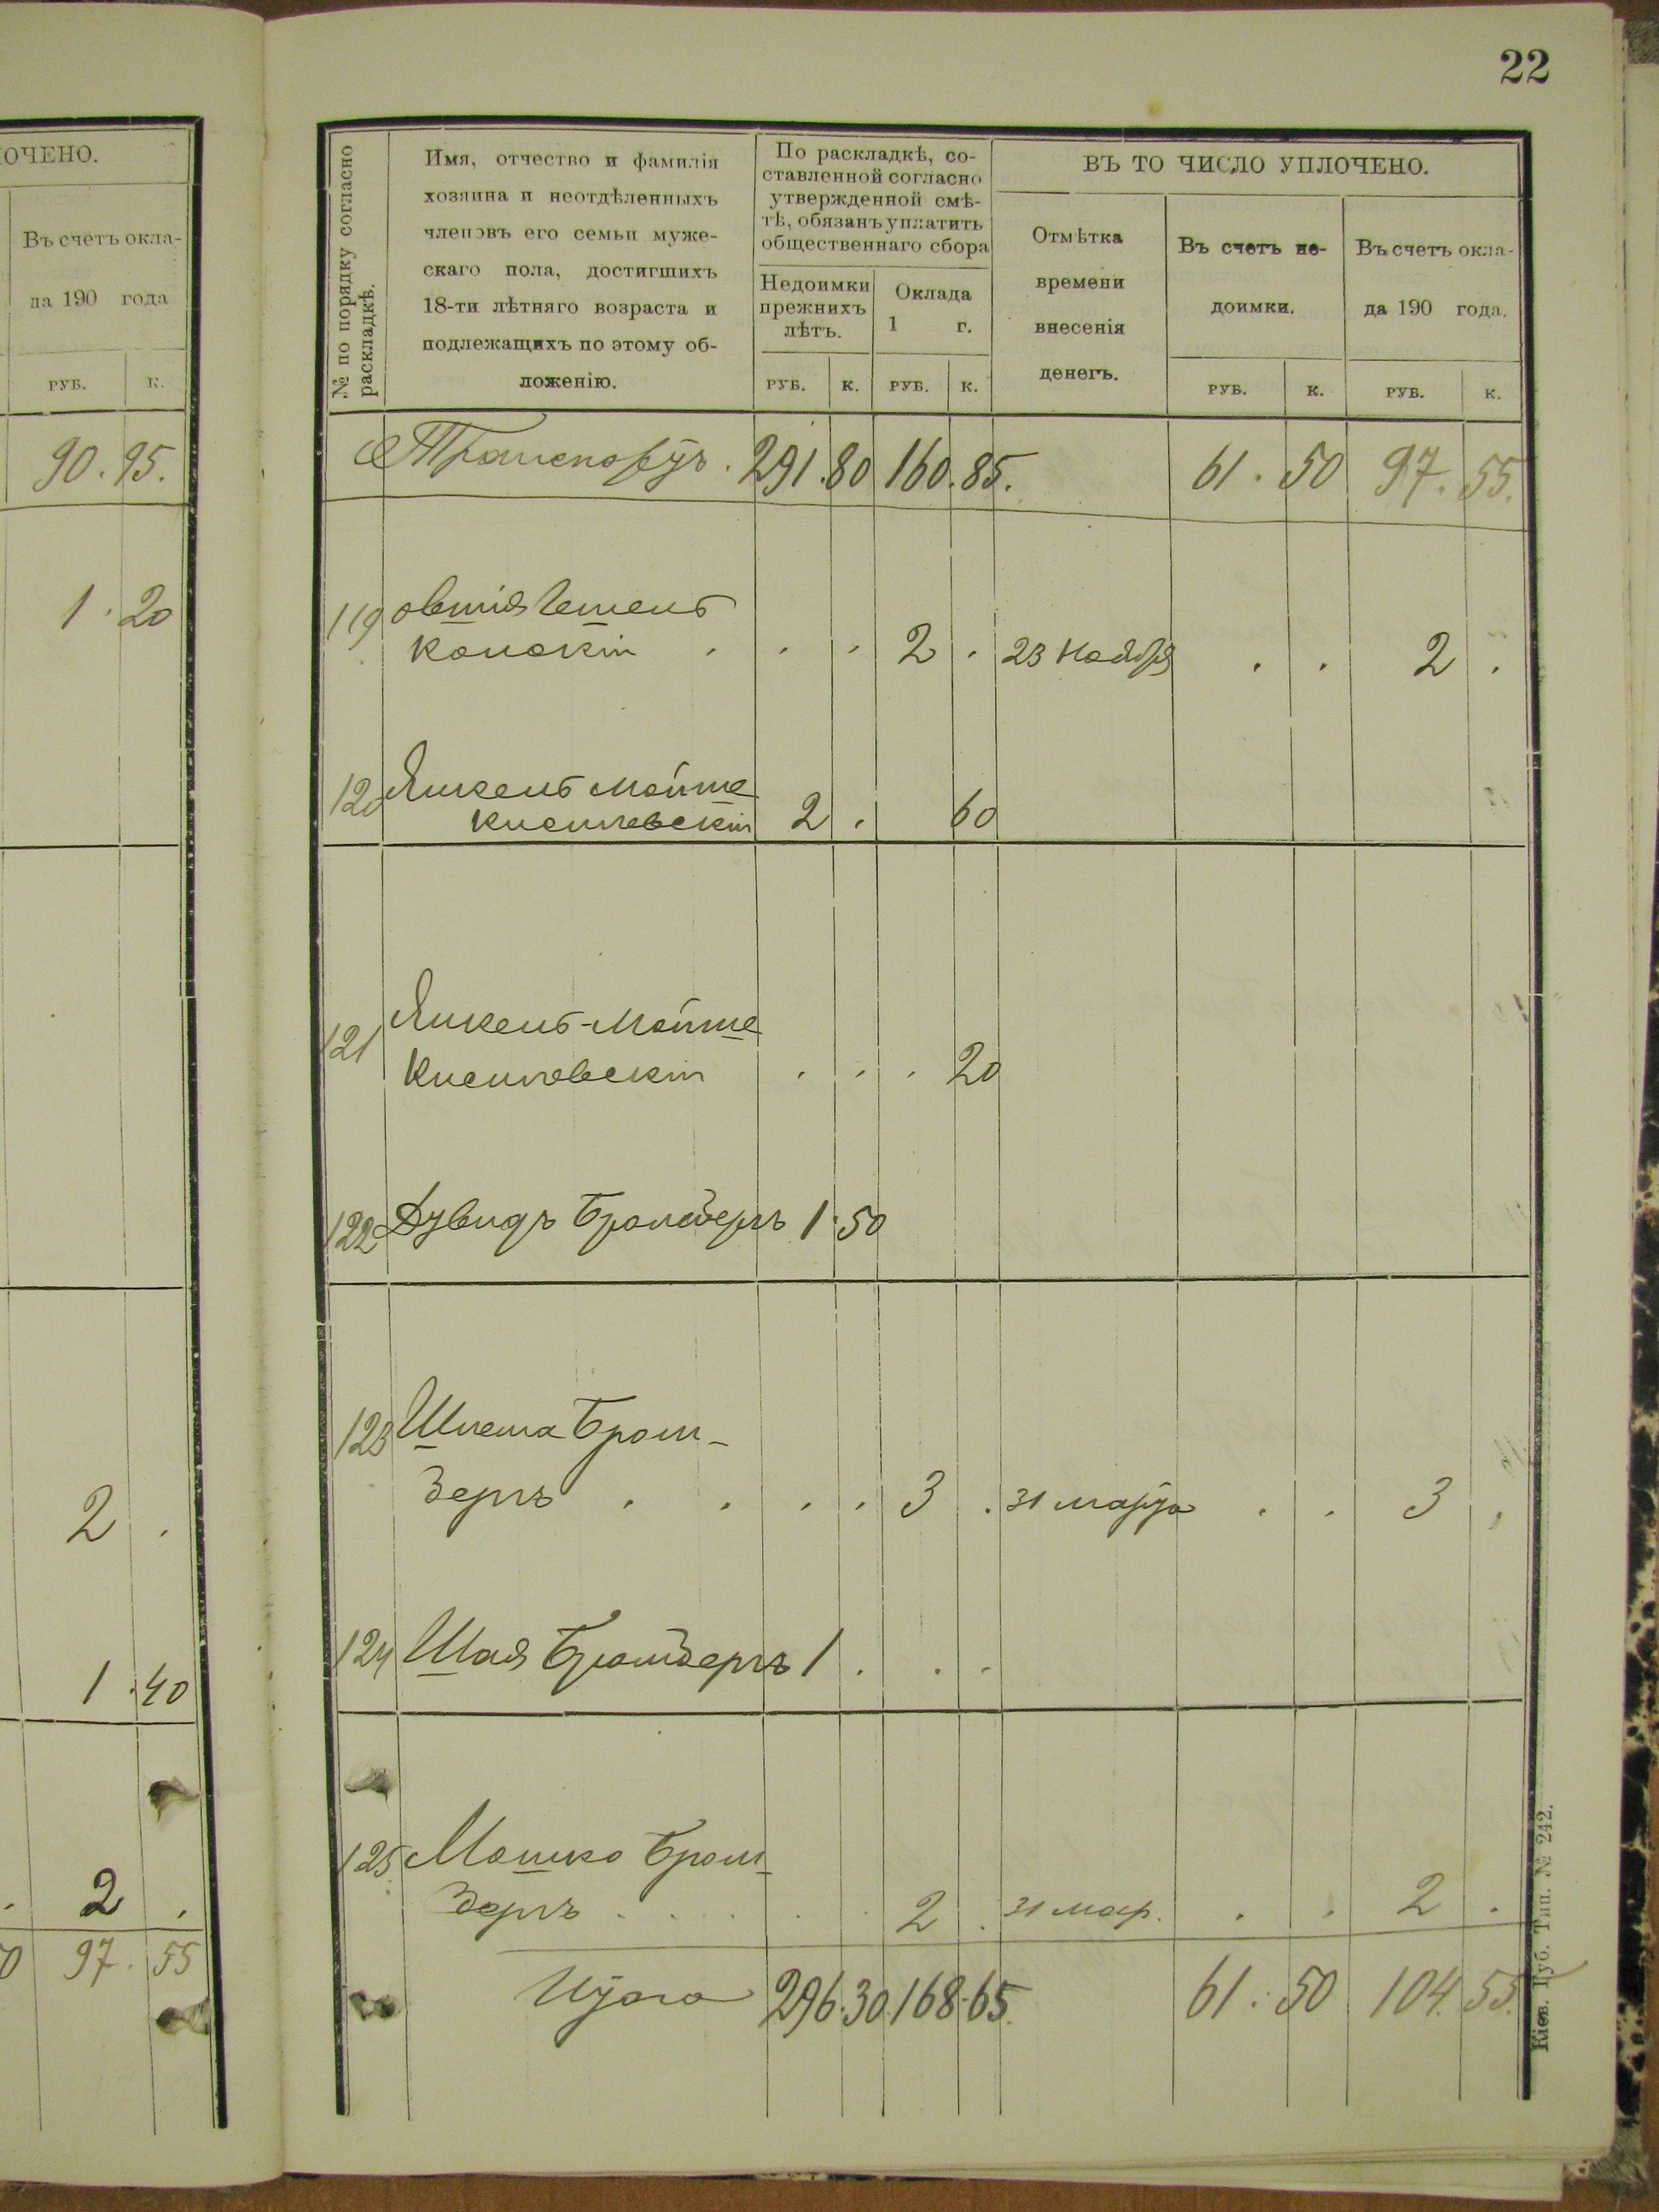 22
ОЧЕНО.
Въ счетъ окла-
да 190 года
РУБ. К.
90. 95.
1. 20
2 .
1. 40
2 .
97. 55
№ по порядку согласно
раскладкѣ.
Имя, отчество и фамилія
хозяина и неотдѣленныхъ
членовъ его семьи муже-
скаго пола, достигшихъ
18-ти лѣтняго возраста и
подлежащихъ по этому об-
ложенію.
По раскладкѣ, со-
ставленной согласно
утвержденной смѣ-
тѣ, обязанъ уплатить
общественнаго сбора
Недоимки
прежнихъ
лѣтъ.
Оклада
1 г.
РУБ. К. РУБ. К.
ВЪ ТО ЧИСЛО УПЛОЧЕНО.
Отмѣтка
времени
внесенія
денегъ.
Въ счетъ не-
доимки.
РУБ. К.
Въ счетъ окла-
да 190 года.
РУБ. К.
Транспортъ. 291. 80 160. 85. 61. 50 97. 55.
119
. . . 2 . 23 Ноября . . 2 .
120 Янкель Мойше
Киселевскій 2 . 60
121 Янкель-Мойше
Киселевскій . . . 20
122 Дувидъ Бромбергъ 1. 50
123 Шлема Бром-
бергъ . . . . 3 . 31 марта . . 3 .
124 Шая Бромбергъ 1 . . .
125 Мошко Бром-
бергъ . . . . . 2 . 31 мар. . . 2 .
Итого 296. 30. 168. 65. 61. 50 104. 55.
Кіев. Губ. Тип. № 242.